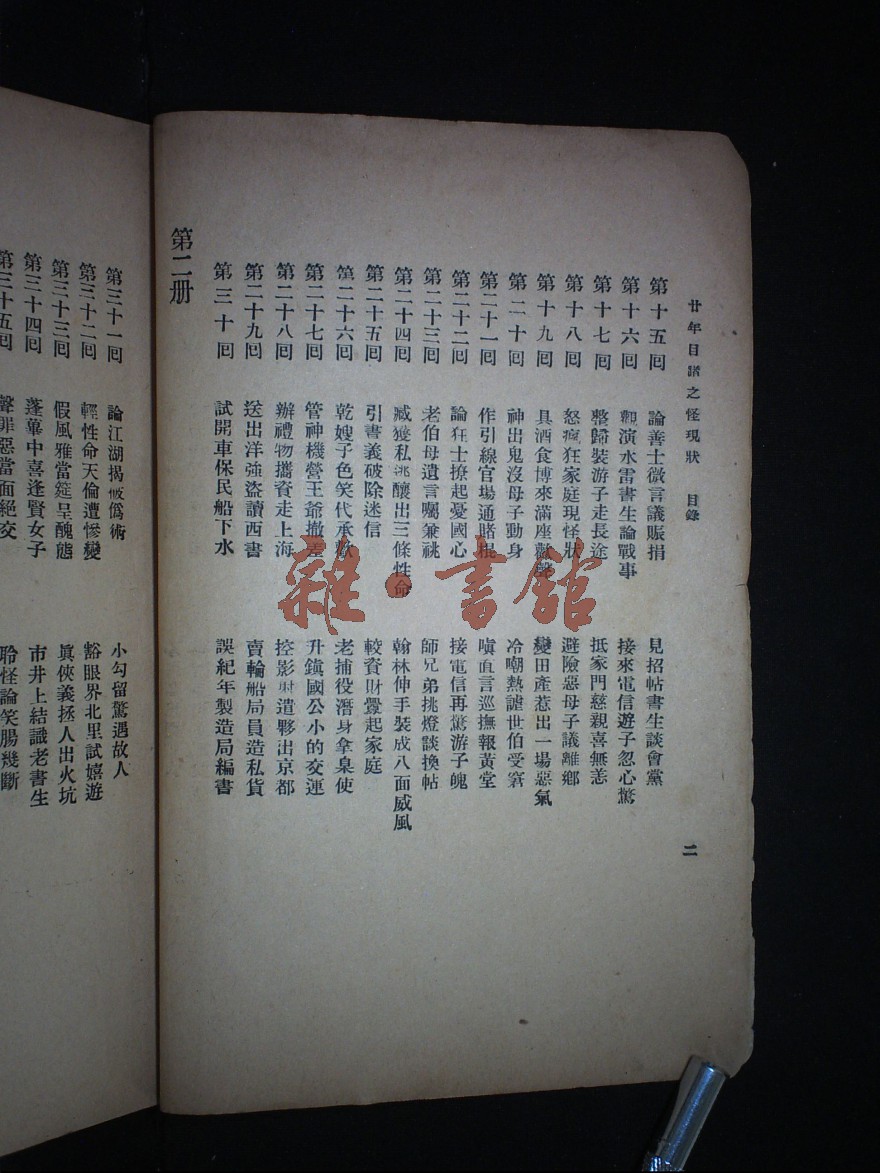 廿年目睹之怪現狀　目錄　二
第十五回　論善士微言議賑捐　見招帖書生談會黨
第十六回　觀演水雷書生論戰事　接來電信遊子忽心驚
第十七回　整歸裝游子走長途　抵家門慈親喜無恙
第十八回　怒瘋狂家庭現怪狀　避險惡母子議離鄉
第十九回　具酒食博來滿座歡聲　變田產惹出一場惡氣
第二十回　神出鬼沒母子動身　冷嘲熱謔世伯受窘
第二十一回　作引線官場通賭棍　嗔直言巡撫報黃堂
第二十二回　論狂士撩起憂國心　接電信再驚游子魄
第二十三回　老伯母遺言囑兼祧　師兄弟挑燈談換帖
第二十四回　臧獲私逃釀出三條性命　翰林伸手裝成八面威風
第二十五回　引書義破除迷信　較資財釁起家庭
第二十六回　乾嫂子色笑代承歡　老捕役潛身拿臬使
第二十七回　管神機營王爺撤差　升鎮國公小的交運
第二十八回　辦禮物攜資走上海　控影射遣夥出京都
第二十九回　送出洋強盜讀西書　賣輪船局員造私貨
第三十回　試開車保民船下水　誤紀年製造局編書
第二册
第三十一回　論江湖揭破僞術　小勾留驚遇故人
第三十二回　輕性命天倫遭慘變　豁眼界北里試嬉遊
第三十三回　假風雅當筵呈醜態　真俠義拯人出火坑
第三十四回　蓬蓽中喜逢賢女子　市井上結識老書生
第三十五回　聲罪惡當面絕交　聆怪論笑腸幾斷
雜·書館